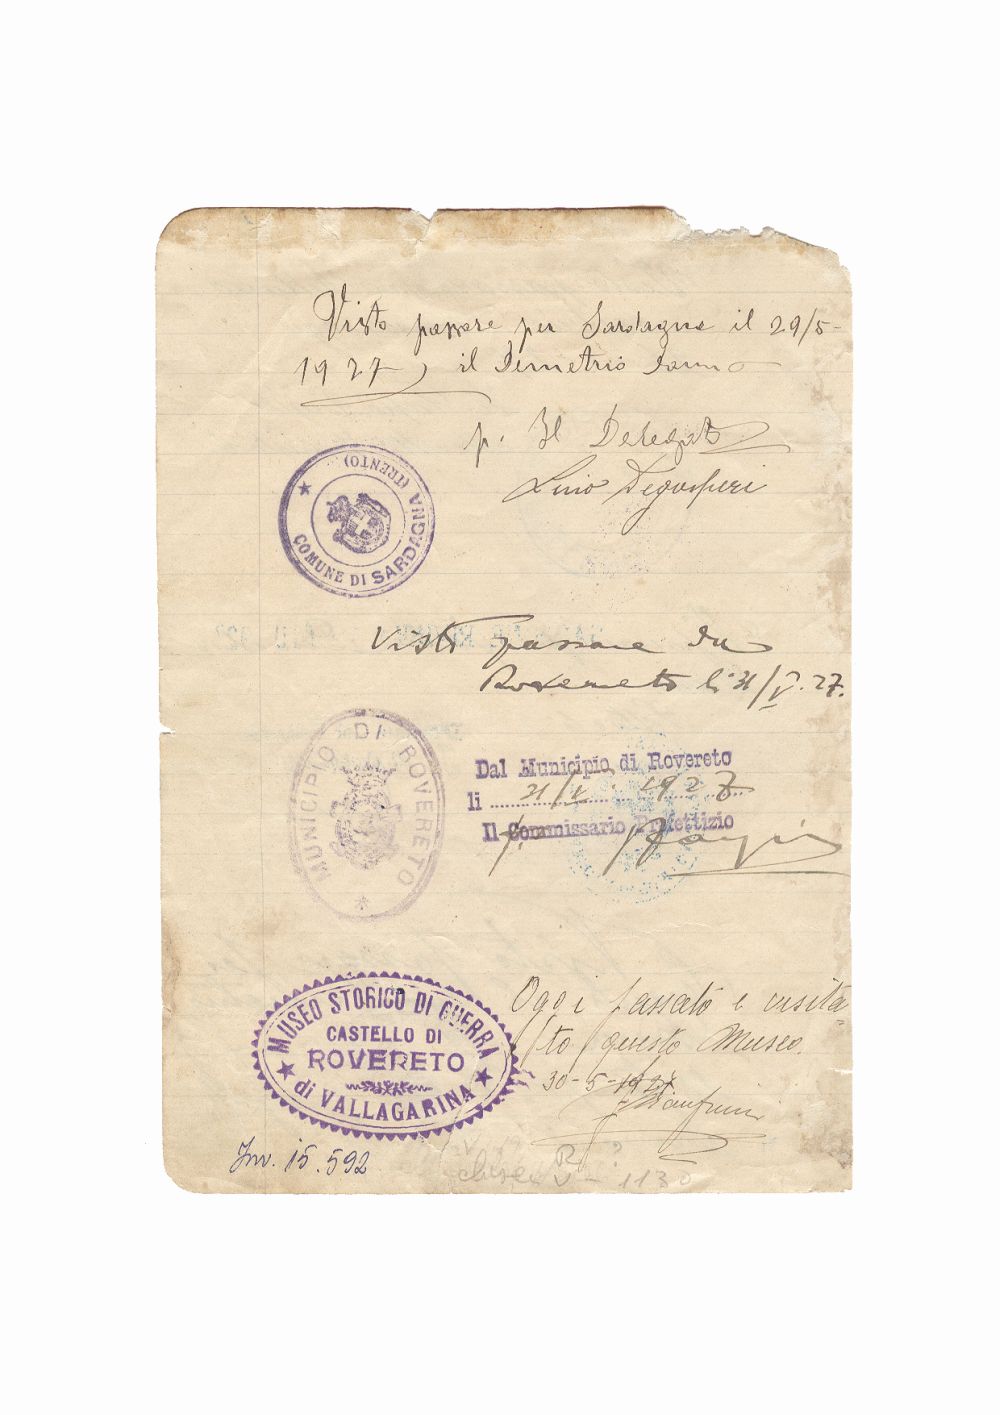 Visto passare per Sardagna il 29/5-
1927, il Demetrio
p. Il Delegato
Lino Degasperi
COMUNE DI SARDAGNA (TRENTO)
Visto passare da
Rovereto li 31/V. 27.
MUNICIPIO DI ROVERETO
Dal Municipio di Rovereto
li 31/V. 1927
Il Commissario Prefettizio
MUSEO STORICO DI GUERRA
CASTELLO DI
ROVERETO
di VALLAGARINA
Oggi passato e visita=
to questo Museo.
30-5-1927
Inv. 15.592